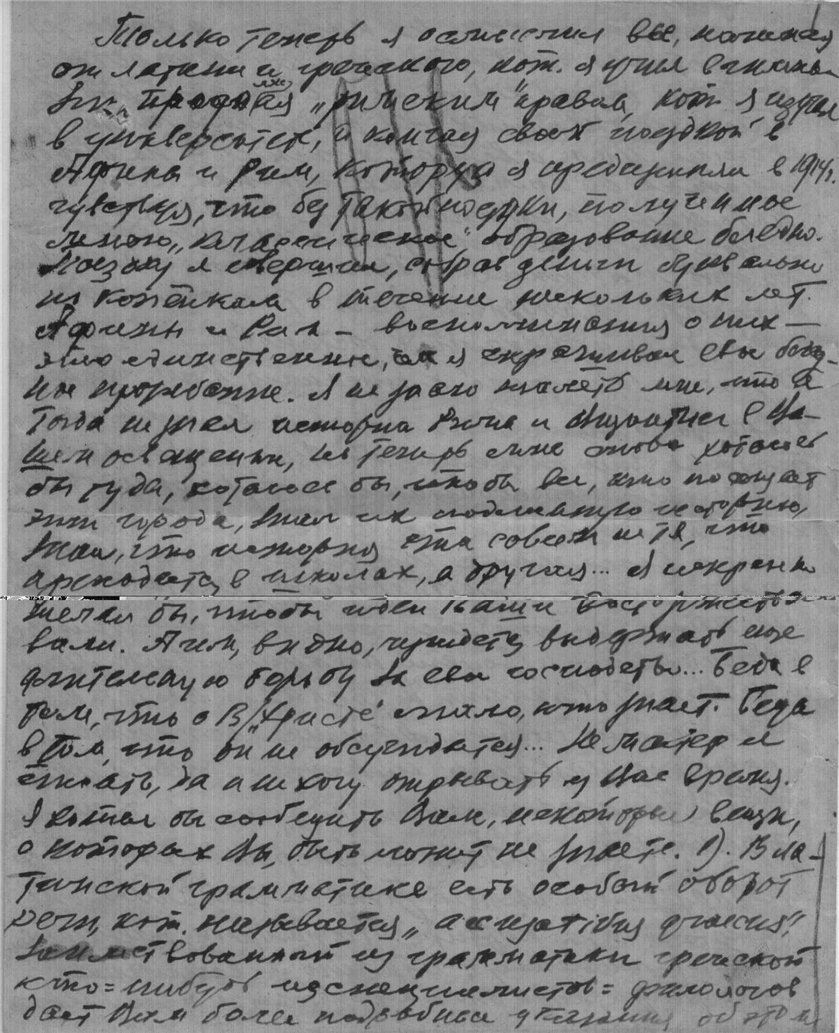 Только теперь я осмыслил все, начиная
от латыни и греческого, кот. я учил в гимна-
зии, "римским" правом, кот. я изучал
в университете, и кончая своей поездкой в
Афины и Рим, которую я предпринял в 1914 г.
чувствуя, что без такой поездки, полученное
мною "классическое" образование бледно.
Поездку я совершил, собрав деньги буквально
по копейкам в течение нескольких лет.
Афины и Рим – воспоминания о них –
это единственное, чем я скрашиваю свое
прозябание. Я не жалею, что я
тогда не знал истории Рима и в Ва-
шем освещении, но теперь мне снова хотелось
бы туда, хотелось бы, чтобы все, кто посещает
эти города, знал их подлинную историю,
знал, что история эта совсем не та, что
проходится в школах, а другая... Я искренно
желал бы, чтобы идеи Ваши восторжество-
вали. А им, видно, придется выдержать еще
длительную борьбу за свое господство... Беда в
том, что о В/"Христе" мало, кто знает. Беда
в том, что он не обсуждается... Не мастер я
писать, да и не хочу отрывать у Вас время.
Я хотел бы сообщить Вам, некоторые вещи,
о которых Вы, быть может не знаете. 1). В ла-
тинской грамматике есть особый оборот
речи, кот. называется "accusativus graecus",
заимствованный из грамматики греческой
кто-нибудь из специалистов-филологов
даст Вам более подробные указания об этом